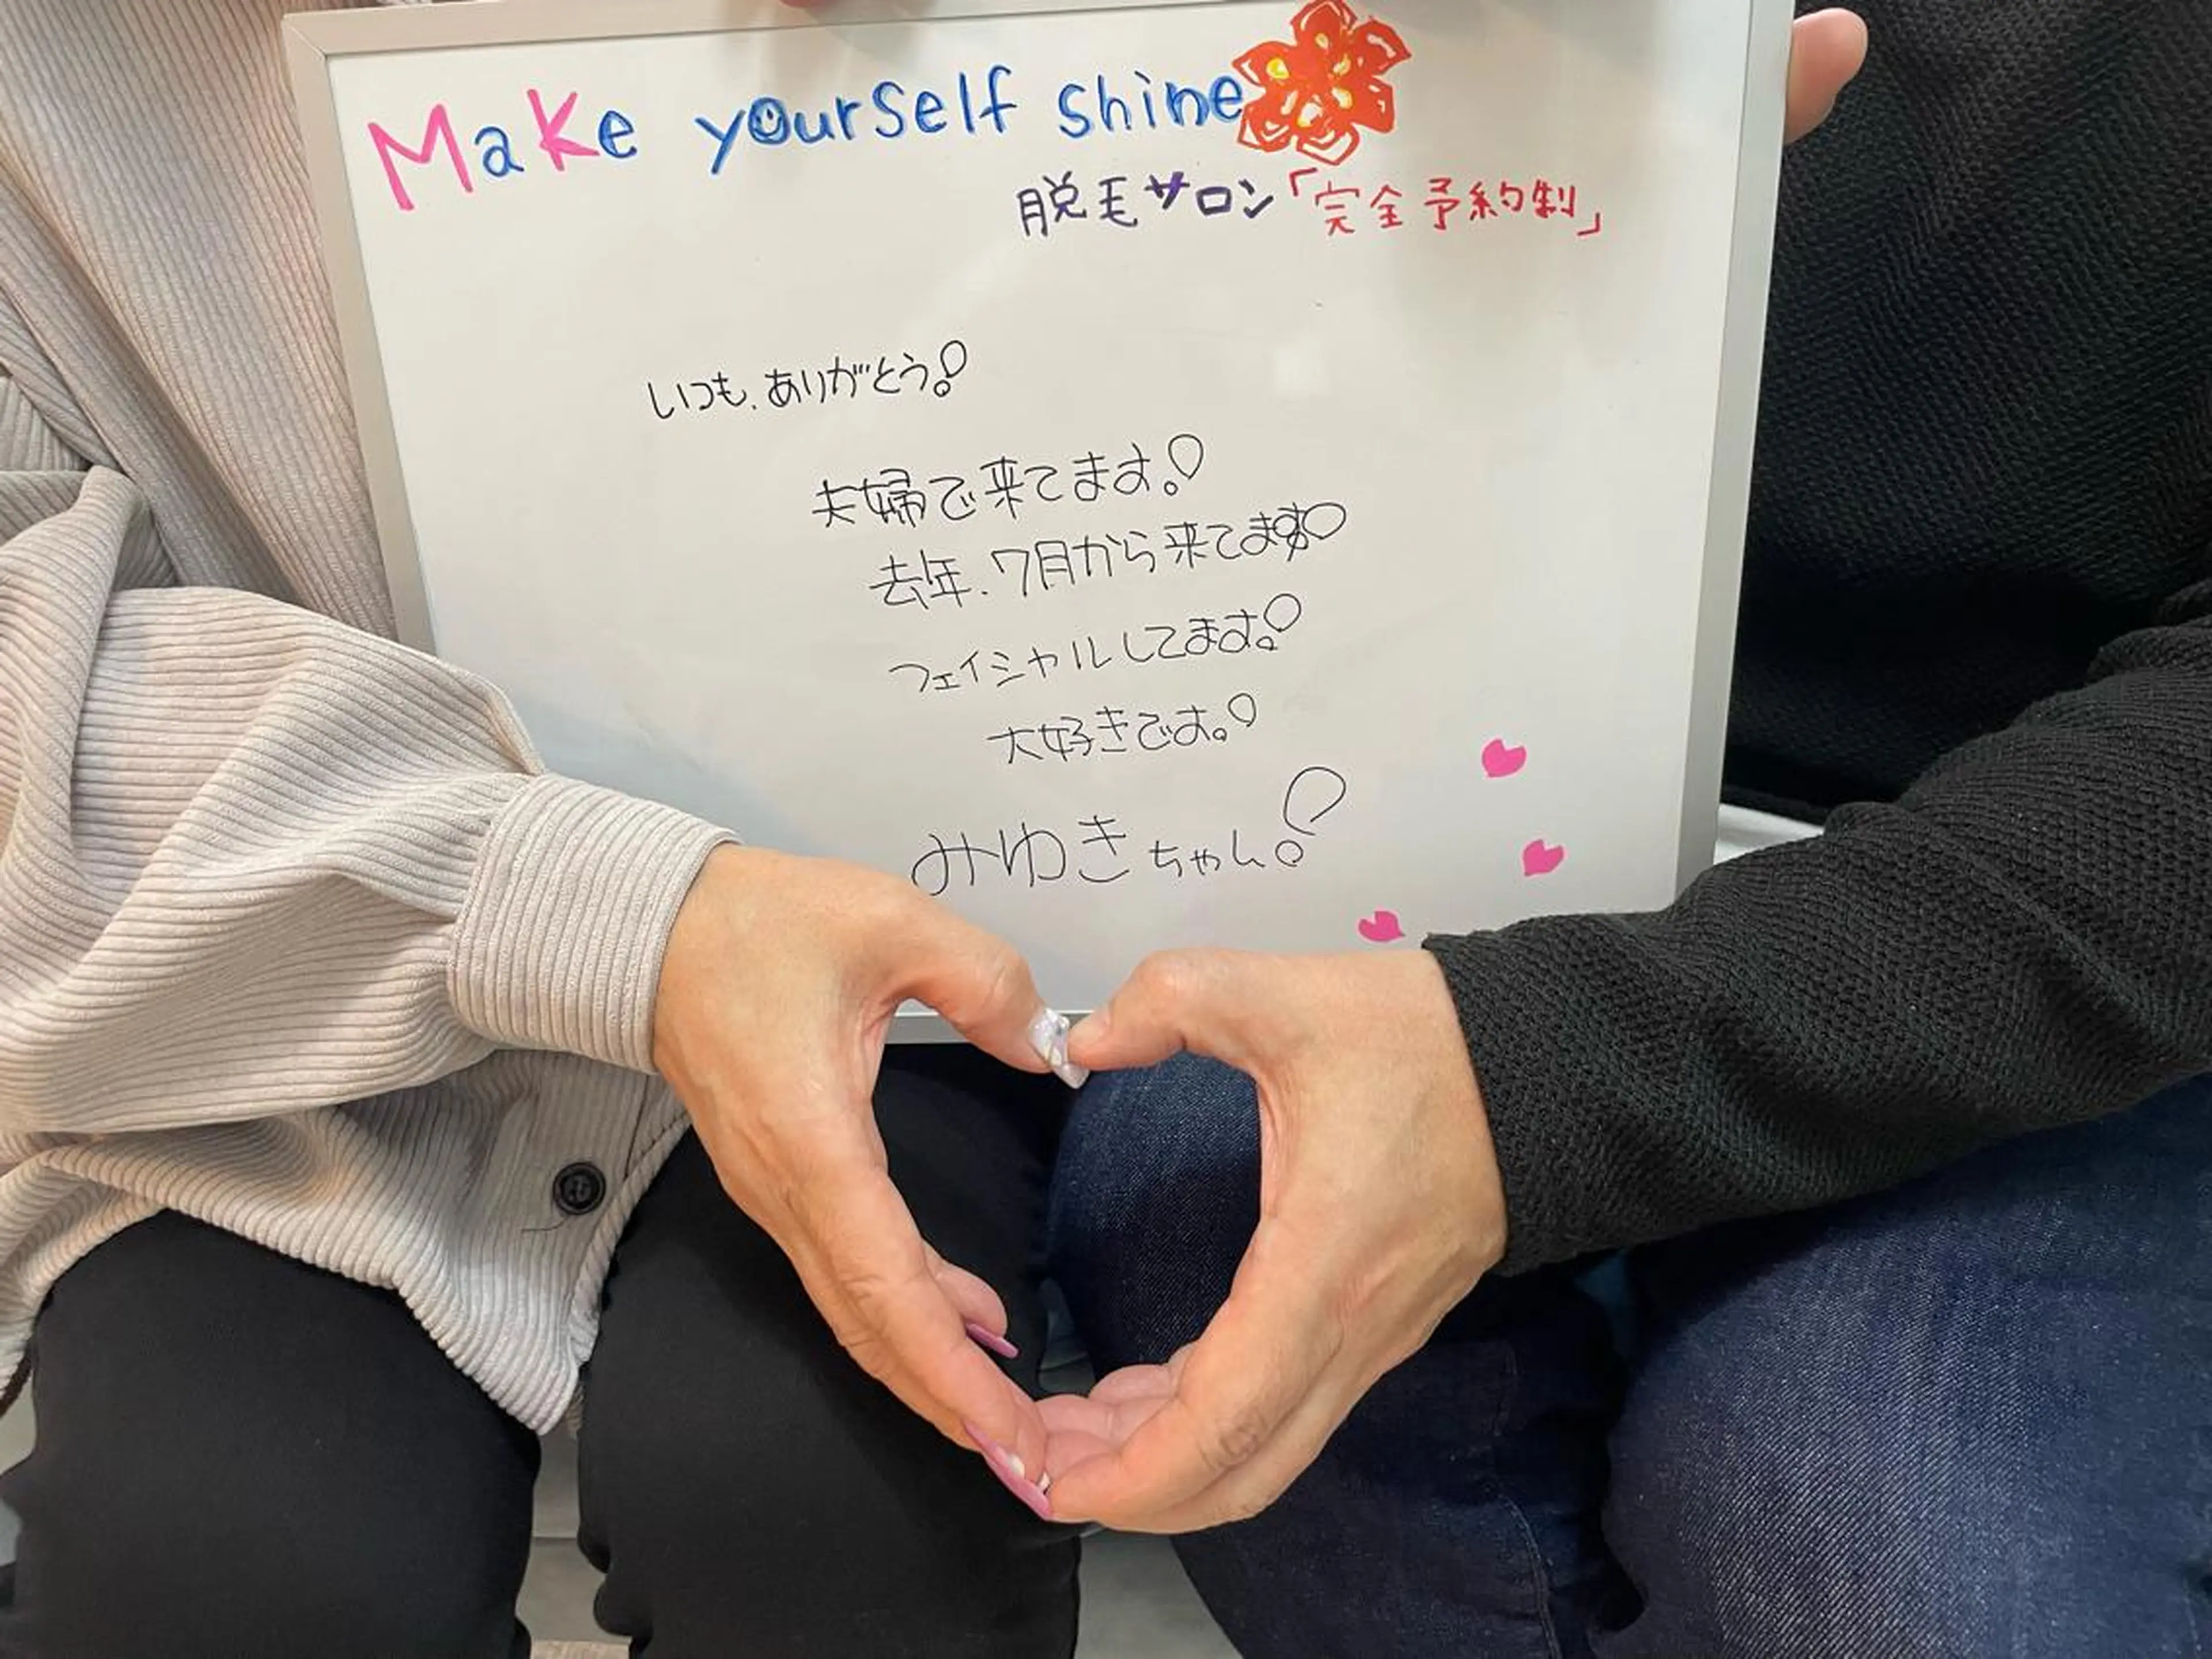 Make yourself shine
脱毛サロン「完全予約制」
いつも、ありがとう!
夫婦で来てます!
去年、7月から来てます!
フェイシャルしてます!
大好きです!
みゆきちゃん!